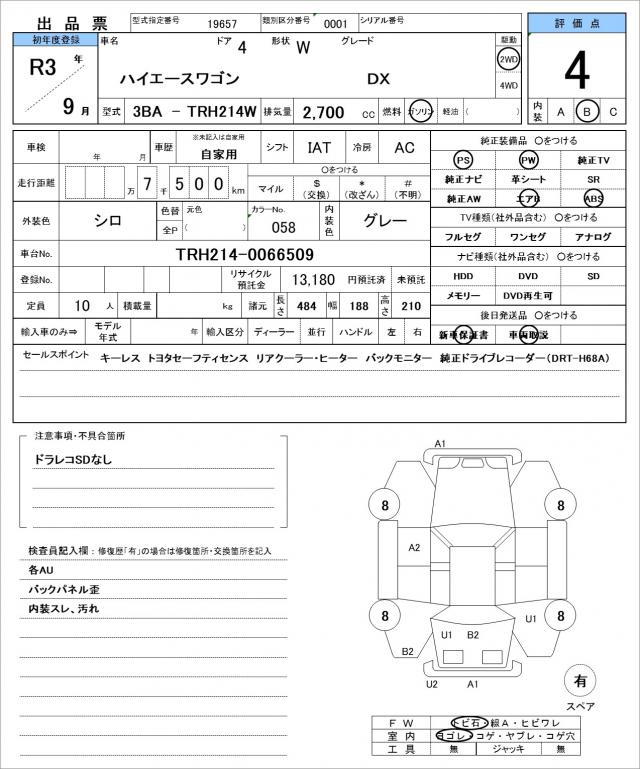 出品票 型式指定番号 19657 類別区分番号 0001 シリアル番号 評価点
初年度登録 車名 ドア 4 形状 W グレード 駆動
R3 年 ハイエースワゴン DX 2WD 4
4WD
9 月 型式 3BA － TRH214W 排気量 2,700 CC 燃料 ガソリン 軽油 ( ) 内装 A B C
車検 年 月 車歴 ※未記入は自家用 自家用 シフト IAT 冷房 AC 純正装備品 〇をつける
PS PW 純正TV
走行距離 万 7 千 5 0 0 km 〇をつける
マイル $ (交換) * (改ざん) # (不明) 純正ナビ 革シート SR
純正AW エアB ABS
外装色 シロ 色替 元色 カラーNo. 058 内装色 グレー TV種類(社外品含む) 〇をつける
全P ( ) フルセグ ワンセグ アナログ
車台No. TRH214-0066509 ナビ種類(社外品含む) 〇をつける
登録No. リサイクル預託金 13,180 円預託済 未預託 HDD DVD SD
定員 10 人 積載量 kg 諸元 長さ 484 幅 188 高さ 210 メモリー DVD再生可
後日発送品 〇をつける
輸入車のみ⇒ モデル年式 年 輸入区分 ディーラー 並行 ハンドル 左 右 新車保証書 車両取説
セールスポイント キーレス トヨタセーフティセンス リアクーラー・ヒーター バックモニター 純正ドライブレコーダー(DRT-H68A)
注意事項・不具合箇所
ドラレコSDなし
検査員記入欄：修復歴「有」の場合は修復箇所・交換箇所を記入
各AU
バックパネル歪
内装スレ、汚れ
A1
8 8
A2
8 8
U1
U1 B2
B2
U2 A1
有
スペア
FW トビ石・線A・ヒビワレ
室内 ヨゴレ・コゲ・ヤブレ・コゲ穴
工具 無 ジャッキ 無